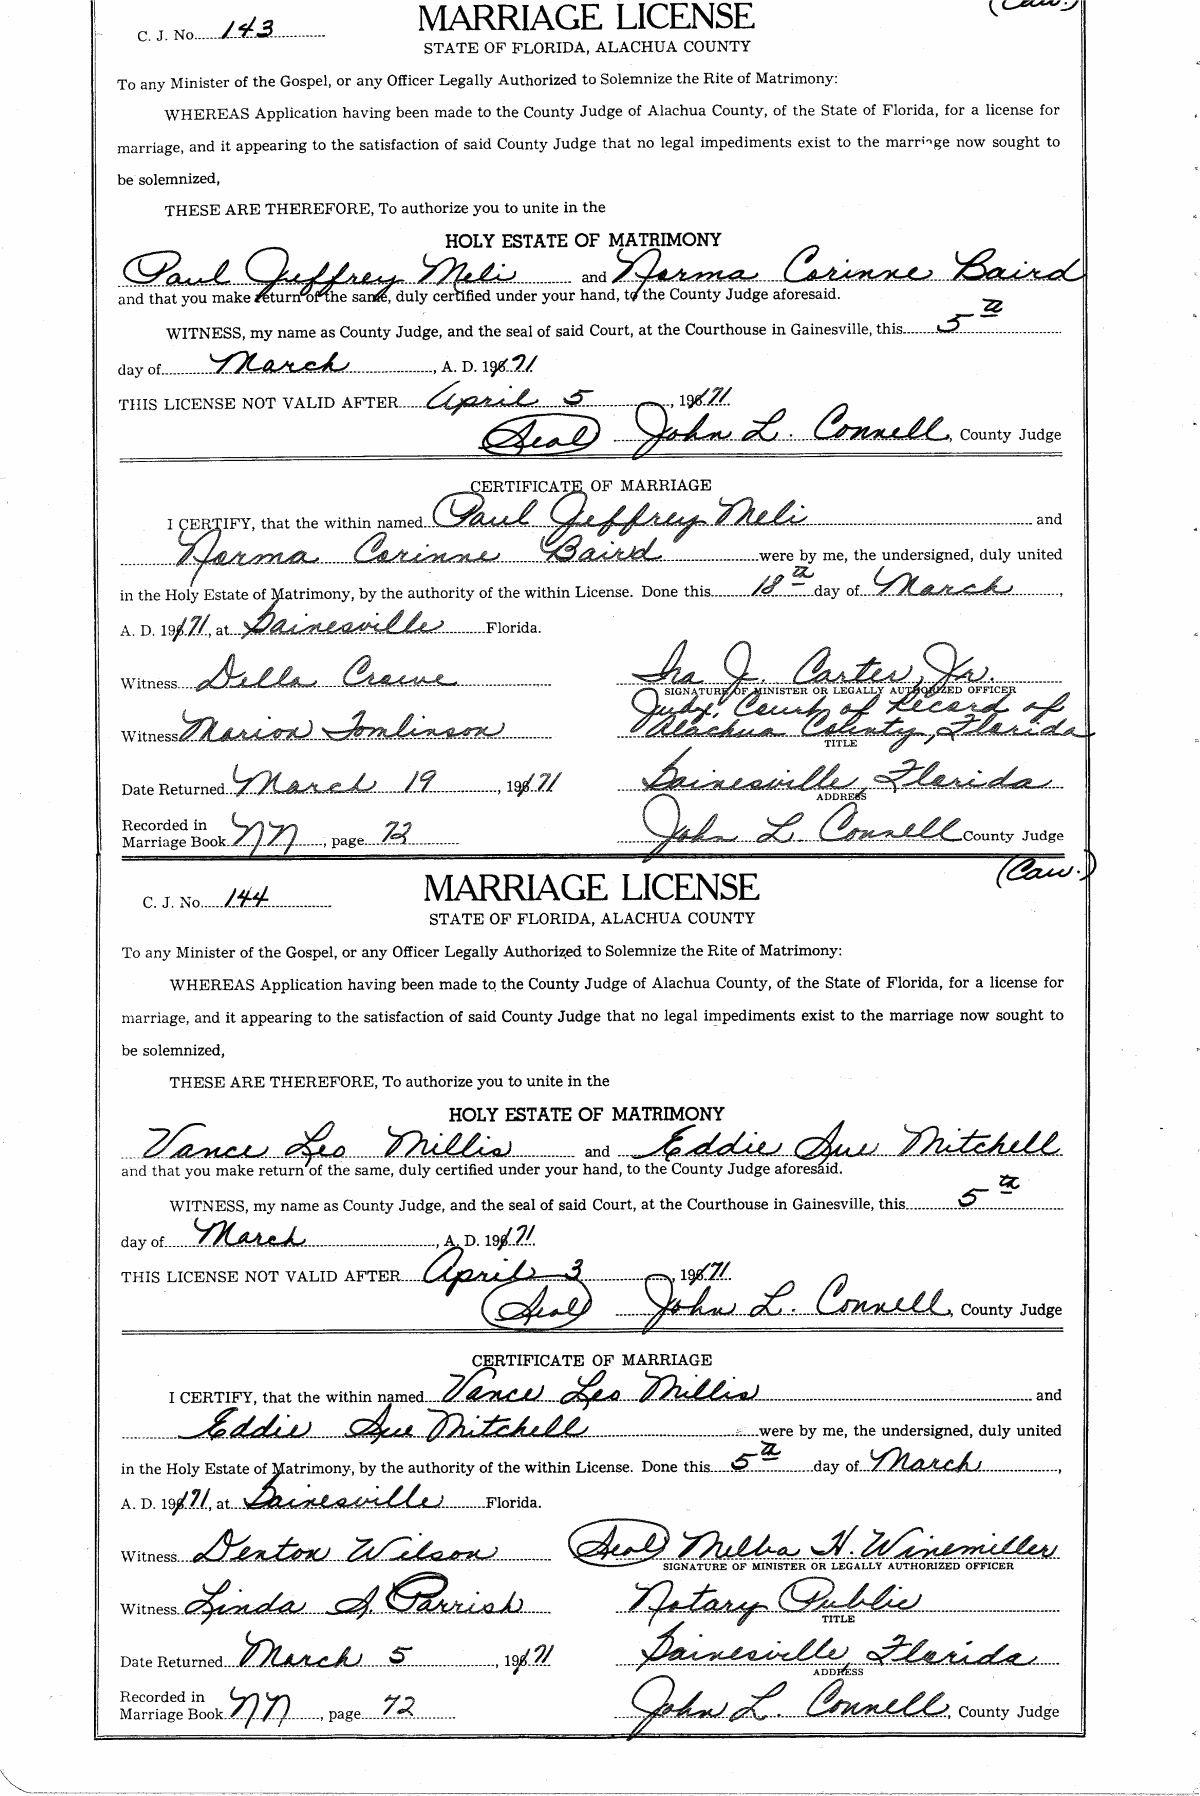 (Caw.)
C. J. No. 143
MARRIAGE LICENSE
STATE OF FLORIDA, ALACHUA COUNTY
To any Minister of the Gospel, or any Officer Legally Authorized to Solemnize the Rite of Matrimony:
WHEREAS Application having been made to the County Judge of Alachua County, of the State of Florida, for a license for
marriage, and it appearing to the satisfaction of said County Judge that no legal impediments exist to the marriage now sought to
be solemnized,
THESE ARE THEREFORE, To authorize you to unite in the
HOLY ESTATE OF MATRIMONY
Paul Jeffrey Meli and Norma Corinne Baird
and that you make return of the same, duly certified under your hand, to the County Judge aforesaid.
WITNESS, my name as County Judge, and the seal of said Court, at the Courthouse in Gainesville, this 5th
day of March, A. D. 1971
THIS LICENSE NOT VALID AFTER April 5, 1971.
(Seal) John L. Connell, County Judge
CERTIFICATE OF MARRIAGE
I CERTIFY, that the within named Paul Jeffrey Meli and
Norma Corinne Baird were by me, the undersigned, duly united
in the Holy Estate of Matrimony, by the authority of the within License. Done this 18th day of March,
A. D. 1971, at Gainesville Florida.
Witness Della Crowe Ira J. Carter, Jr.
SIGNATURE OF MINISTER OR LEGALLY AUTHORIZED OFFICER
Judge, Court of Record of
Witness Marion Tomlinson Alachua County, Florida
TITLE
Date Returned March 19, 1971 Gainesville, Florida
ADDRESS
Recorded in
Marriage Book NN, page 72 John L. Connell County Judge
(Caw.)
C. J. No. 144
MARRIAGE LICENSE
STATE OF FLORIDA, ALACHUA COUNTY
To any Minister of the Gospel, or any Officer Legally Authorized to Solemnize the Rite of Matrimony:
WHEREAS Application having been made to the County Judge of Alachua County, of the State of Florida, for a license for
marriage, and it appearing to the satisfaction of said County Judge that no legal impediments exist to the marriage now sought to
be solemnized,
THESE ARE THEREFORE, To authorize you to unite in the
HOLY ESTATE OF MATRIMONY
Vance Leo Millis and Eddie Sue Mitchell
and that you make return of the same, duly certified under your hand, to the County Judge aforesaid.
WITNESS, my name as County Judge, and the seal of said Court, at the Courthouse in Gainesville, this 5th
day of March, A. D. 1971.
THIS LICENSE NOT VALID AFTER April 3, 1971.
(Seal) John L. Connell, County Judge
CERTIFICATE OF MARRIAGE
I CERTIFY, that the within named Vance Leo Millis and
Eddie Sue Mitchell were by me, the undersigned, duly united
in the Holy Estate of Matrimony, by the authority of the within License. Done this 5th day of March,
A. D. 1971, at Gainesville Florida.
Witness Denton Wilson (Seal) Melba H. Winemiller
SIGNATURE OF MINISTER OR LEGALLY AUTHORIZED OFFICER
Witness Linda S. Parrish Notary Public
TITLE
Date Returned March 5, 1971 Gainesville, Florida
ADDRESS
Recorded in
Marriage Book NN, page 72 John L. Connell, County Judge